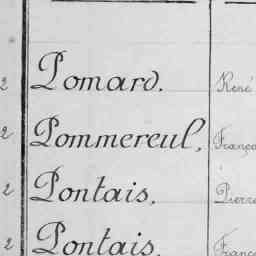 2 Pomard. René
2 Pommereul, Franço
2 Pontais, Pierre
2 Pontais, Franç